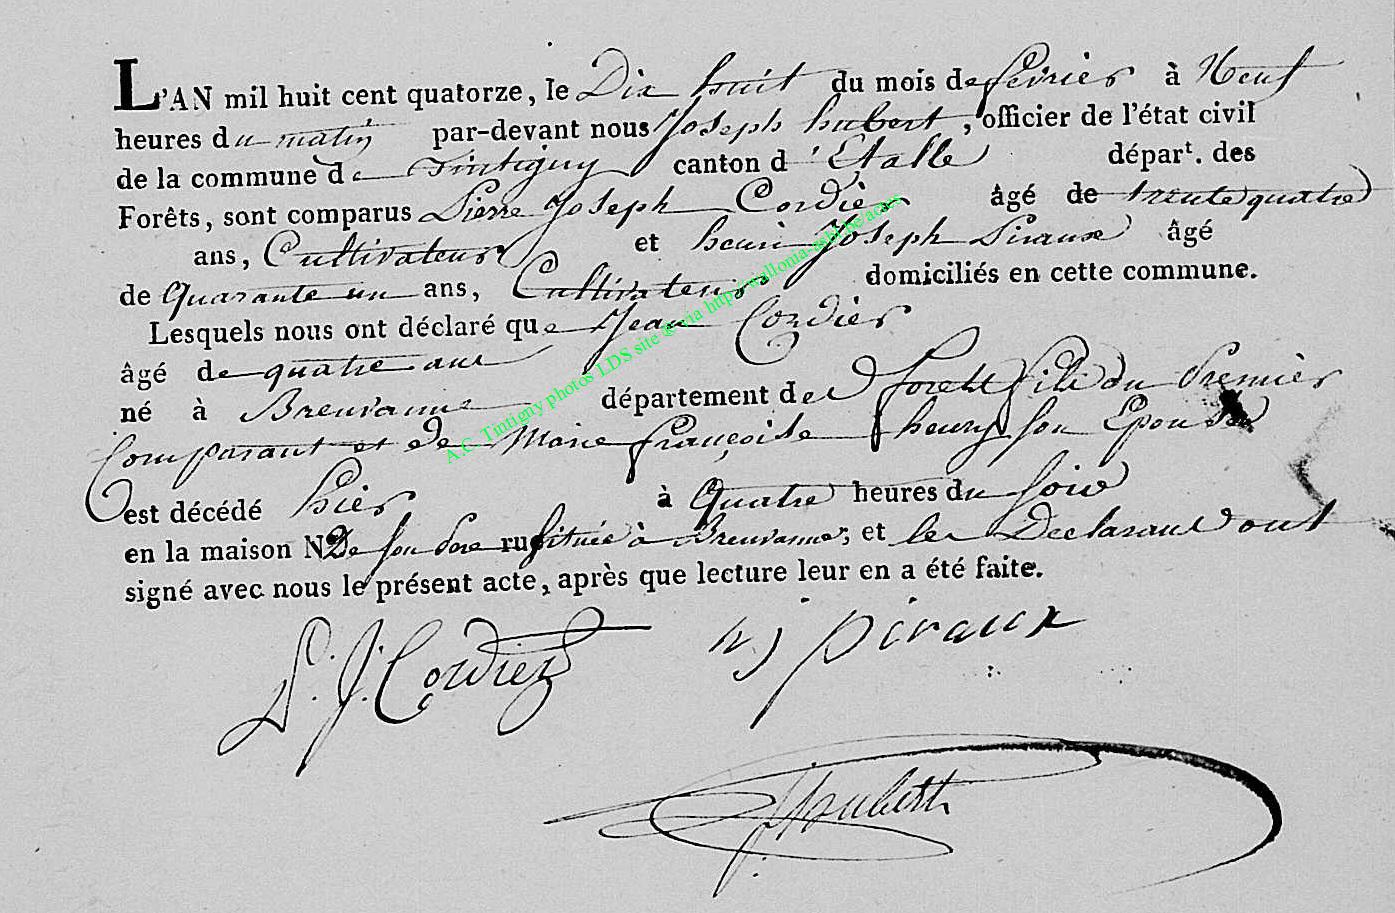 L'AN mil huit cent quatorze, le Dix huit du mois de fevrier à Neuf
heures du matin par-devant nous Joseph hubert, officier de l'état civil
de la commune de Tintigny canton d'Etalle départ. des
Forêts, sont comparus Pierre Joseph Cordier âgé de trente quatre
ans, Cultivateur et henri Joseph Piraux âgé
de Quarante un ans, Cultivateur domiciliés en cette commune.
Lesquels nous ont déclaré que Jean Cordier
âgé de quatre ans
né à Breuvanne département des forets fils du Premier
Comparant et de Marie françoise henry son Epouse
est décédé hier à Quatre heures du soir
en la maison N De son Pere rue située à Breuvanne; et les Declarans ont
signé avec nous le présent acte, après que lecture leur en a été faite.
P. J. Cordier hj piraux
J hubert
A.C. Tintigny photos LDS site @ via http://wallonia-asbl.be/actes